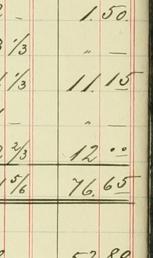 - 1.50.
1/3 " —
1/3 11.15
- " —
2/3 12 00
1 5/6 76.65
52 80